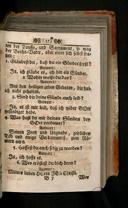 der Beicht-Vater, oder einer sich selbst
1. Glaubest du, daß du ein Sünder seyst?
Antwort:
Ja, ich glaube es, ich bin ein Sünder.
2. Woher weißt du das?
Aus den heiligen zehen Geboten, die hab
ich nicht gehalten.
3. Sind dir deine Sünde auch leid?
Antwort:
Ja, es ist mir leid, daß ich wider GOtt
gesündiget habe.
4. Was hast du mit deinen Sünden bey
GOtt verdienet?
Antwort:
Seinen Zorn und Ungnade, zeitlichen
Tod und ewige Verdammniß.
5. Hoffest du auch selig zu werden?
Antwort:
Ja, ich hoffe es.
6. Wes tröstest du dich dann?
Antwort:
Meines lieben HErrn JEsu Christi.